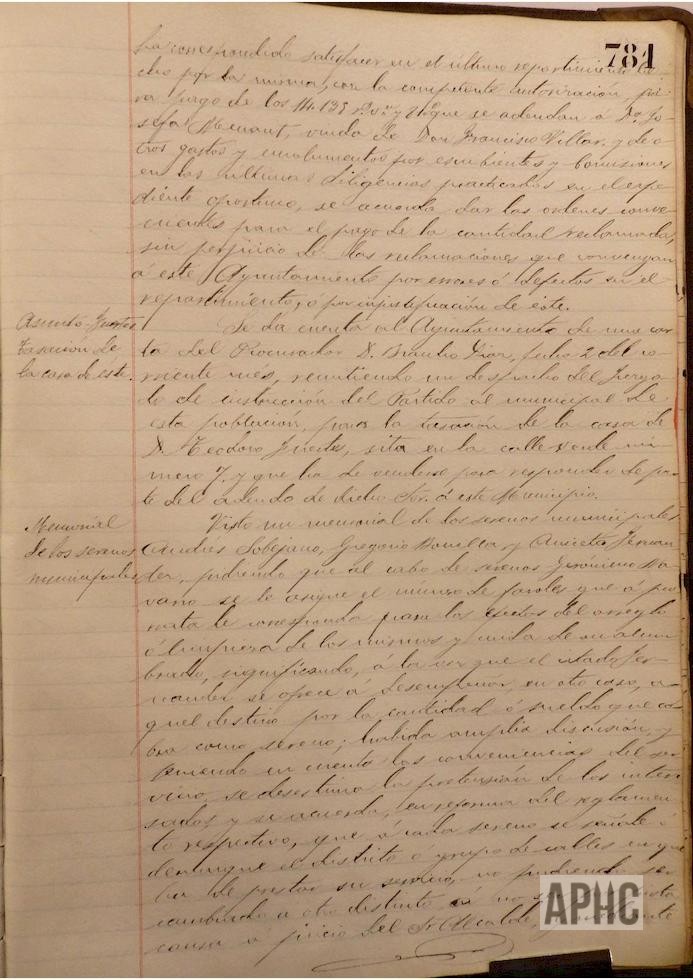 781
ha correspondido satisfacer en el último repartimiento he-
cho por la misma, con la competente autorización, pa-
ra pago de los 14.135 r.s v.n y 21 que se adeudan á D.a Jo-
sefa Menaut, viuda de Don Francisco Villar, y de o-
tros gastos y emolumentos por escribientes y Comisiones
en las ultimas diligencias practicadas en el expe-
diente oportuno, se acuerda dar las ordenes conve-
nientes para el pago de la cantidad reclamada,
sin perjuicio de las reclamaciones que convengan
á este Ayuntamiento por errores ó defectos en el
repartimiento, o por injustificación de éste.
Asunto Fuertes
tasación de
la casa de este.
Se da cuenta al Ayuntamiento de una car-
ta del Procurador D. Braulio fecha 2 del co-
rriente mes, remitiendo un despacho del Juzga-
do de instrucción del Partido al municipal de
esta población, para la tasación de la casa de
D. Teodoro Fuertes, sita en la calle nú-
mero 7, y que ha de venderse para responder de par-
te del adeudo de dicho Sor. á este Municipio.
Memorial
de los serenos
municipales
Visto un memorial de los serenos municipales
Andrés Sobejano, Gregorio y Aniceto Fernan-
dez, pidiendo que al cabo de serenos Geronimo Na-
varro se le asigne el número de faroles que á pro-
rata le corresponda para los efectos del arreglo
ó limpieza de los mismos y cuida de su alum-
brado, significando, á la vez que el citado Fer-
nandez se ofrece á desempeñar, en otro caso, a-
quel destino por la cantidad ó sueldo que co-
bra como sereno; habida amplia discusión, y
teniendo en cuenta las conveniencias del ser-
vicio, se desestima la pretensión de los intere-
sados y se acuerda, en reforma del reglamen-
to respectivo, que á cada sereno se señale ó
demarque el distrito o grupo de calles en que
ha de prestar su servicio, no pudiendo ser
cambiado a otro distrito si no justa
causa á juicio del Sr. Alcalde,
APHC